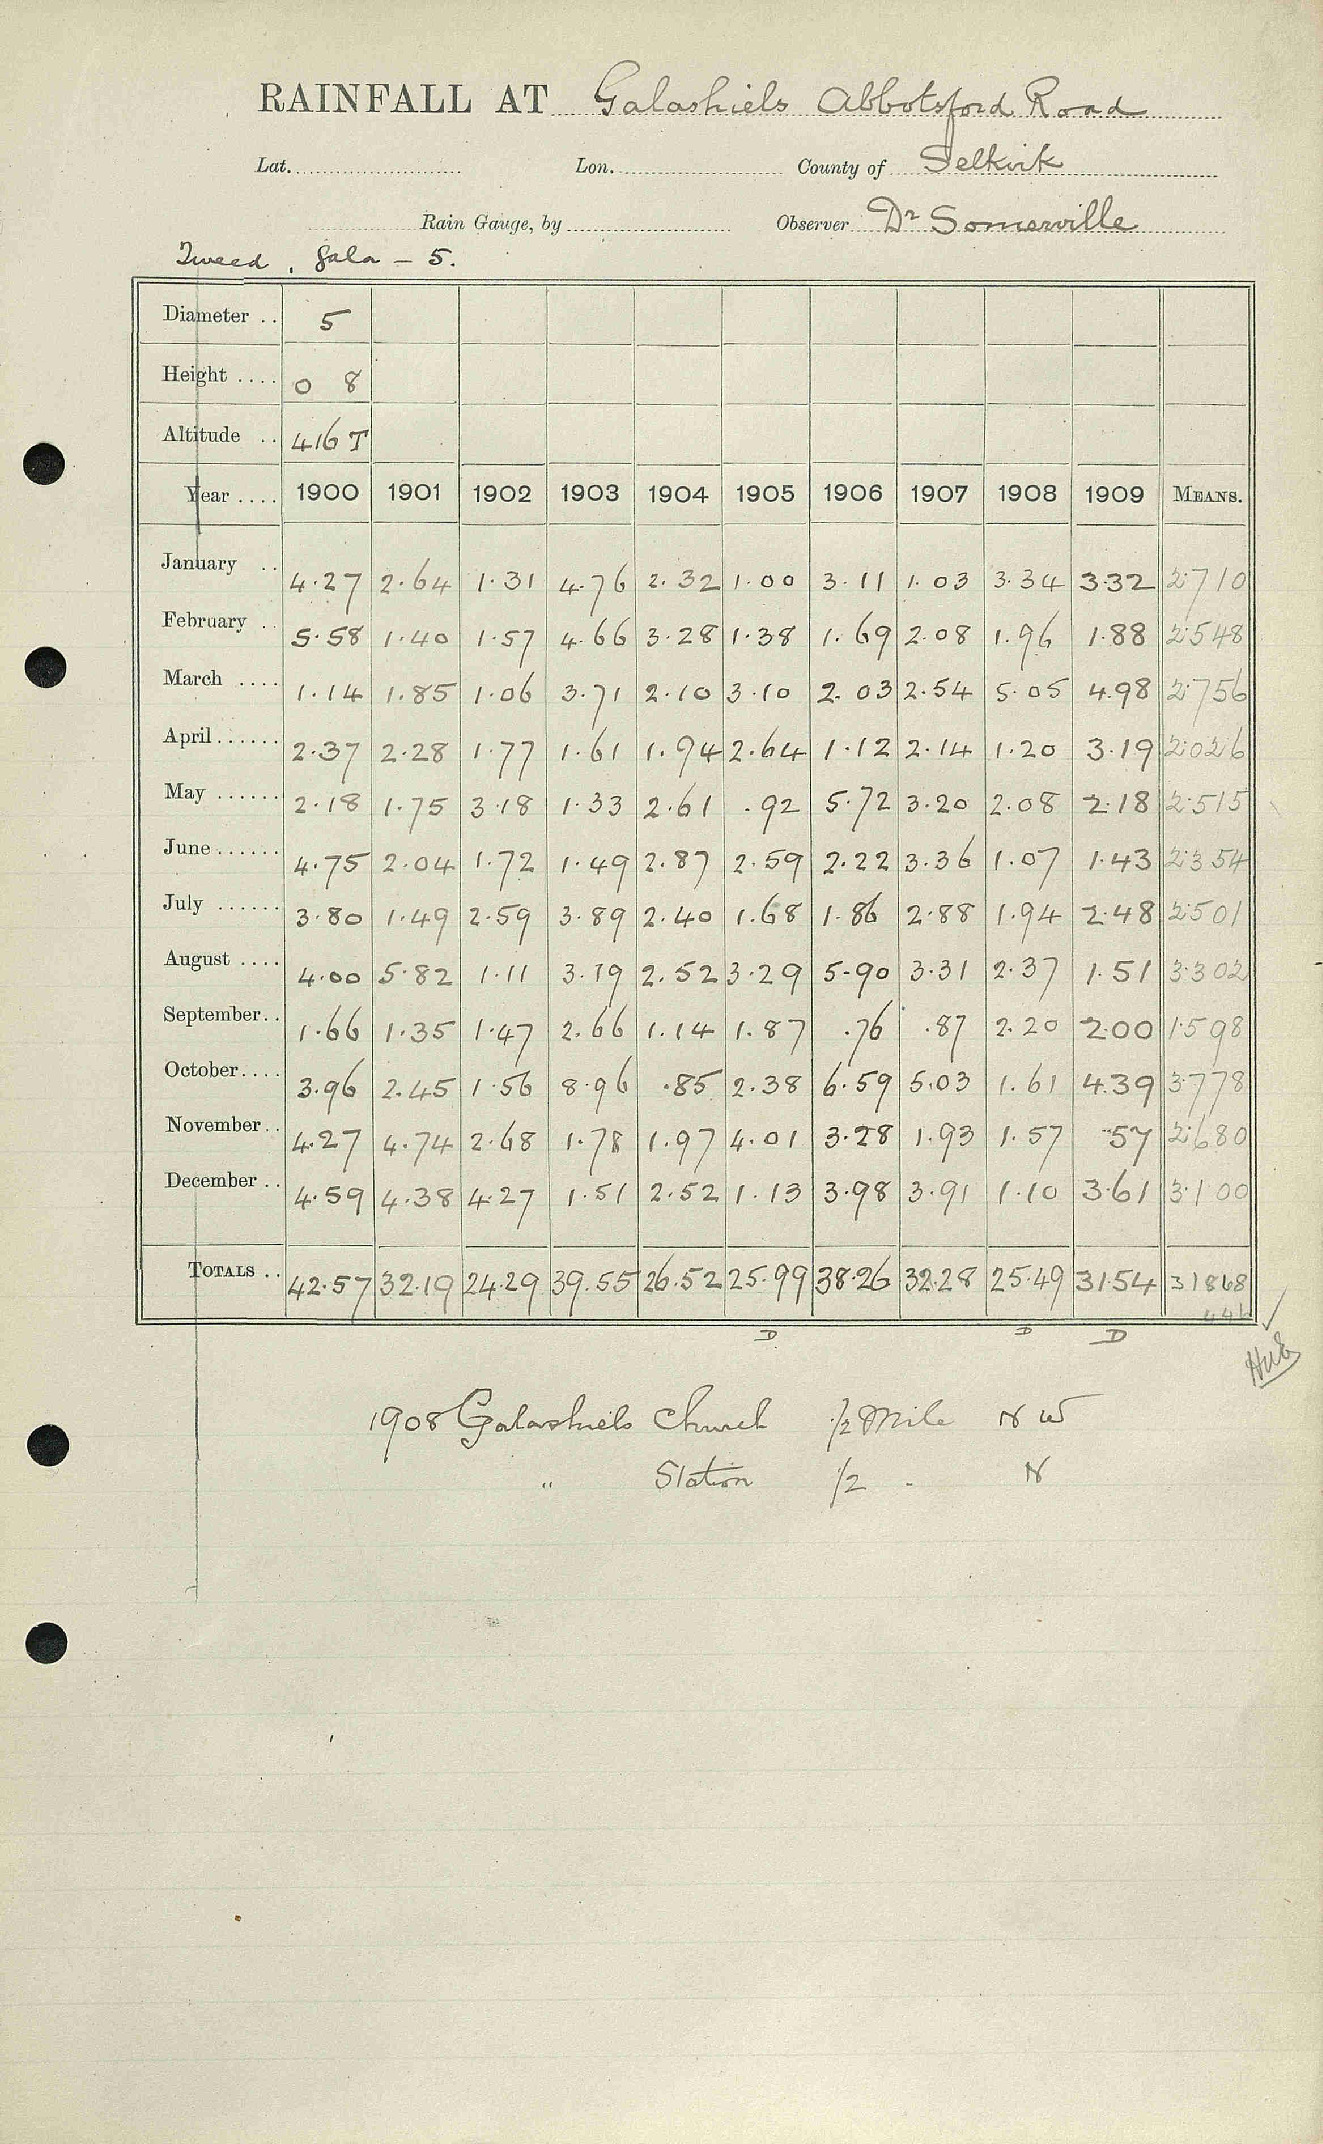 RAINFALL AT Galashiels Abbotsford Road
Lat. Lon. County of Selkirk
Rain Gauge, by Observer Dr Somerville
Tweed, Gala - 5.
Diameter .. 5
Height .... 0 8
Altitude .. 416 T
Year .... 1900 1901 1902 1903 1904 1905 1906 1907 1908 1909 MEANS.
January .. 4.27 2.64 1.31 4.76 2.32 1.00 3.11 1.03 3.34 3.32 2.710
February .. 5.58 1.40 1.57 4.66 3.28 1.38 1.69 2.08 1.96 1.88 2.548
March .... 1.14 1.85 1.06 3.71 2.10 3.10 2.03 2.54 5.05 4.98 2.756
April ...... 2.37 2.28 1.77 1.61 1.94 2.64 1.12 2.14 1.20 3.19 2.026
May ...... 2.18 1.75 3.18 1.33 2.61 .92 5.72 3.20 2.08 2.18 2.515
June ...... 4.75 2.04 1.72 1.49 2.87 2.59 2.22 3.36 1.07 1.43 2.354
July ...... 3.80 1.49 2.59 3.89 2.40 1.68 1.86 2.88 1.94 2.48 2.501
August .... 4.00 5.82 1.11 3.19 2.52 3.29 5.90 3.31 2.37 1.51 3.302
September .. 1.66 1.35 1.47 2.66 1.14 1.87 .76 .87 2.20 2.00 1.598
October .... 3.96 2.45 1.56 8.96 .85 2.38 6.59 5.03 1.61 4.39 3.778
November .. 4.27 4.74 2.68 1.78 1.97 4.01 3.28 1.93 1.57 .57 2.680
December .. 4.59 4.38 4.27 1.51 2.52 1.13 3.98 3.91 1.10 3.61 3.100
TOTALS .. 42.57 32.19 24.29 39.55 26.52 25.99 38.26 32.28 25.49 31.54 31868
D D D
1908 Galashiels Church 1/2 Mile N W
" Station 1/2 " N